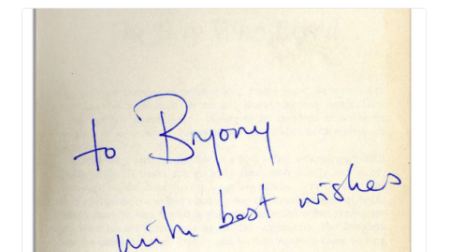 to Bryony
with best wishes